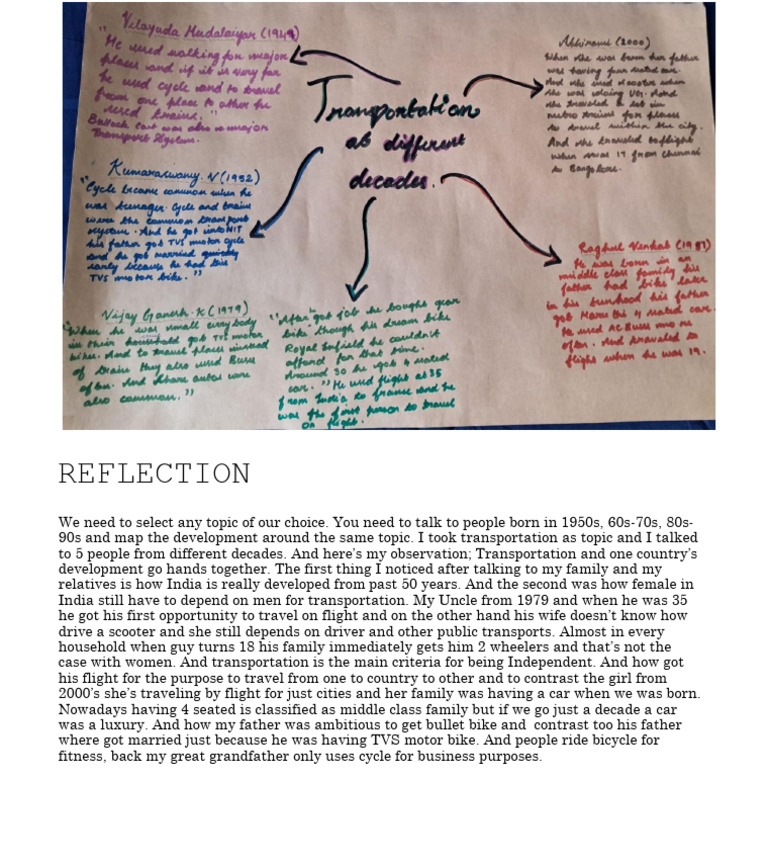 Vilayuda Mudalaiyar (1949)
"He used walking for major
places and if it is very far
he used cycle and to travel
from one place to other he
used trains."
Bullock cart was also a major
Transport System.
Transportation
at different
decades.
Abhirami (2000)
When she was born her father
was having four seated car.
And she used scooter when
she was doing UG. And
she traveled a lot in
metro trains for places
to travel within the city.
And she traveled to flight
when was 19 from Chennai
to Bangalore.
Kumaraswamy. N (1952)
"Cycle became common when he
was teenager. Cycle and trains
were the common transport
system. And he got into NIT
his father got TVS motor cycle
and he got married quickly
early because he had this
TVS motor bike."
Raghul Venkat (1987)
He was born in an
middle class family his
father had bike later
in his his father
got Maruthi 4 seated car.
He used AC Buses more
often. And traveled to
flight when he was 19.
Vijay Ganesh. K (1979)
"When he was small everybody
in their household got TVS motor
bike. And to travel places instead
of trains they also used Buses
often. And share autos were
also common."
"After got job he bought gear
bike though his dream bike
Royal Enfield he couldn't
afford for that time.
Around 30 he got 4 seated
car." He used flight at 35
from India to France and he
was the first person to travel
on flight.
REFLECTION
We need to select any topic of our choice. You need to talk to people born in 1950s, 60s-70s, 80s-
90s and map the development around the same topic. I took transportation as topic and I talked
to 5 people from different decades. And here's my observation; Transportation and one country's
development go hands together. The first thing I noticed after talking to my family and my
relatives is how India is really developed from past 50 years. And the second was how female in
India still have to depend on men for transportation. My Uncle from 1979 and when he was 35
he got his first opportunity to travel on flight and on the other hand his wife doesn't know how
drive a scooter and she still depends on driver and other public transports. Almost in every
household when guy turns 18 his family immediately gets him 2 wheelers and that's not the
case with women. And transportation is the main criteria for being Independent. And how got
his flight for the purpose to travel from one to country to other and to contrast the girl from
2000's she's traveling by flight for just cities and her family was having a car when we was born.
Nowadays having 4 seated is classified as middle class family but if we go just a decade a car
was a luxury. And how my father was ambitious to get bullet bike and contrast too his father
where got married just because he was having TVS motor bike. And people ride bicycle for
fitness, back my great grandfather only uses cycle for business purposes.